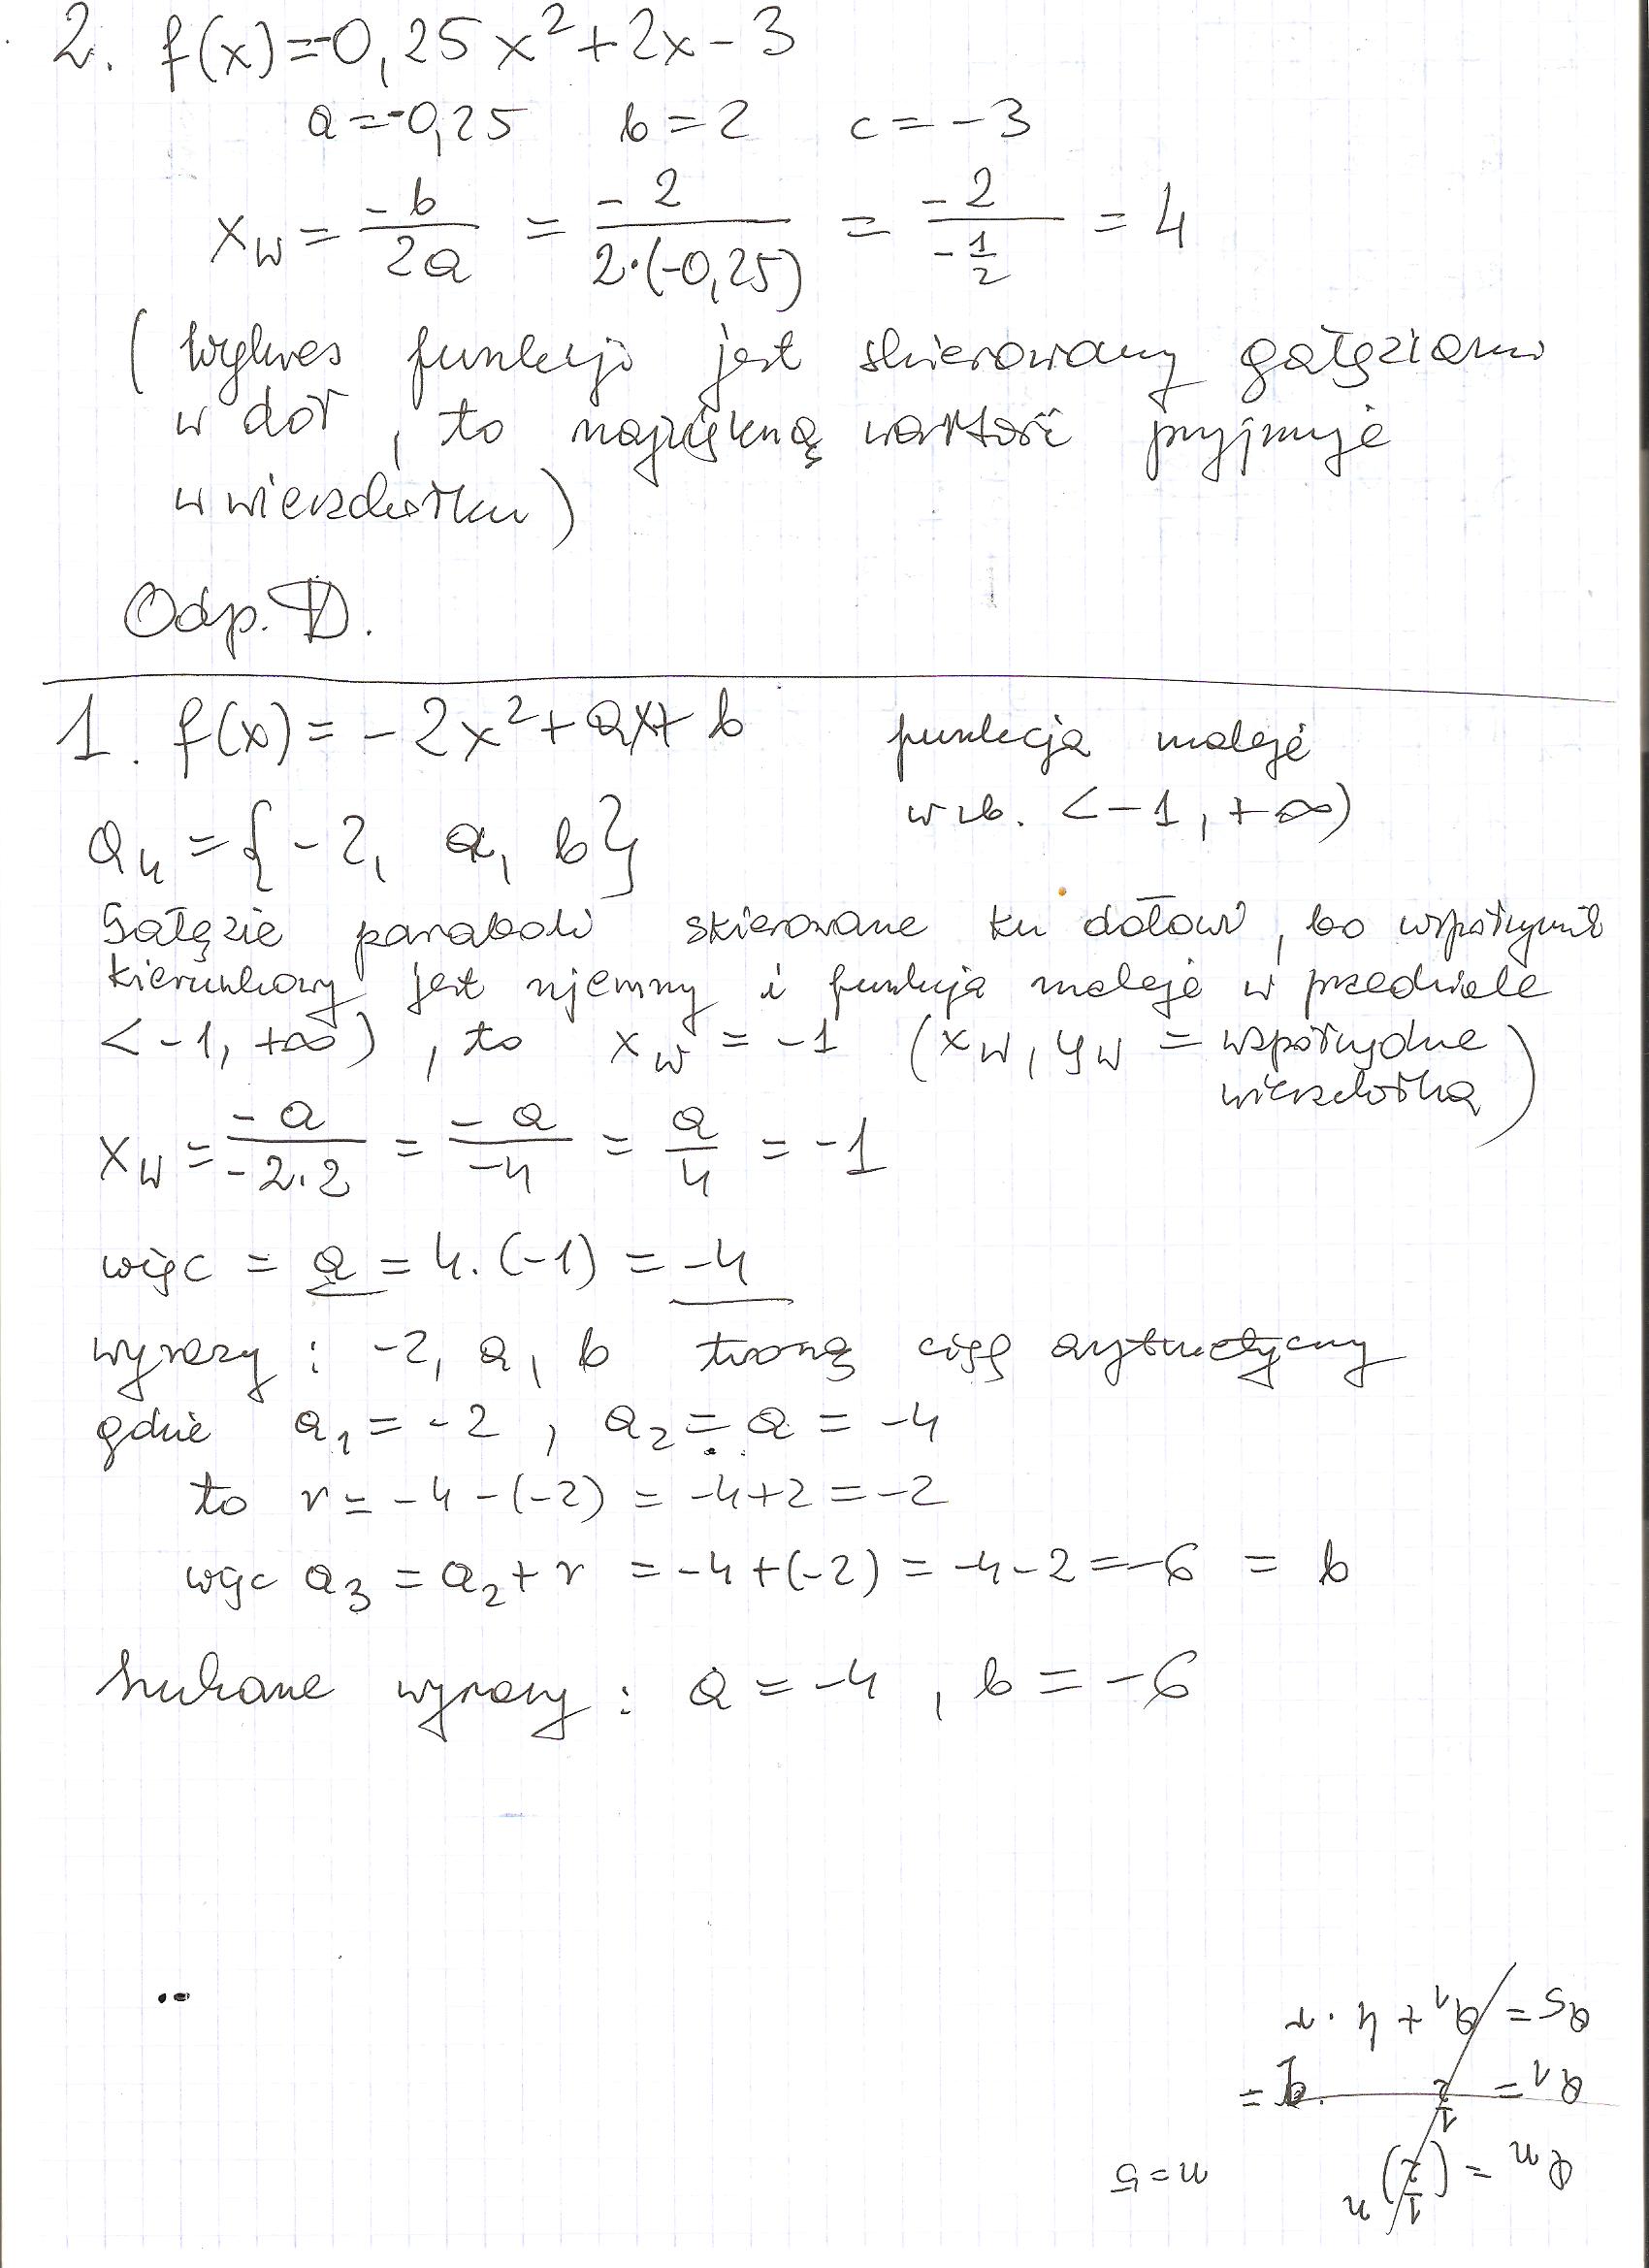 2. f(x)=-0,25x²+2x-3
a=-0,25 b=2 c=-3
x_w = -b/2a = -2/2·(-0,25) = -2/-1/2 = 4
(Wykres funkcji jest skierowany gałęziami
w dół, to największą wartość przyjmuje
w wierzchołku)
Odp. D.
1. f(x)=-2x²+ax+b funkcja maleje
w zb. <-1, +∞)
a_n = {-2, a, b}
Gałęzie paraboli skierowane ku dołowi, bo współczynnik
kierunkowy jest ujemny i funkcja maleje w przedziale
<-1, +∞), to x_w = -1 (x_w, y_w = współrzędne
wierzchołka)
x_w = -a/-2·2 = -a/-4 = a/4 = -1
więc = a = 4·(-1) = -4
wyrazy: -2, a, b tworzą ciąg arytmetyczny
gdzie a₁ = -2, a₂ = a = -4
to r = -4-(-2) = -4+2 = -2
więc a₃ = a₂+r = -4+(-2) = -4-2 = -6 = b
Szukane wyrazy: a = -4, b = -6
a_n = (1/2)^n n=5
a₁ = 1/2
a₅ = a₁ + 4·r